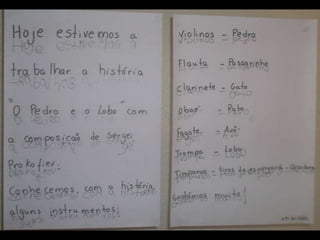 Hoje estivemos a
trabalhar a história
"O Pedro e o Lobo" com
a composição de Sergei
Prokofiev.
Conhecemos, com a história,
alguns instrumentos:
violinos - Pedro
Flauta - Passarinho
Clarinete - Gato
Oboé - Pato
Fagote - Avô
Trompa - Lobo
Tímpanos - tiros da espingarda - Caçadores
Gostámos muito!